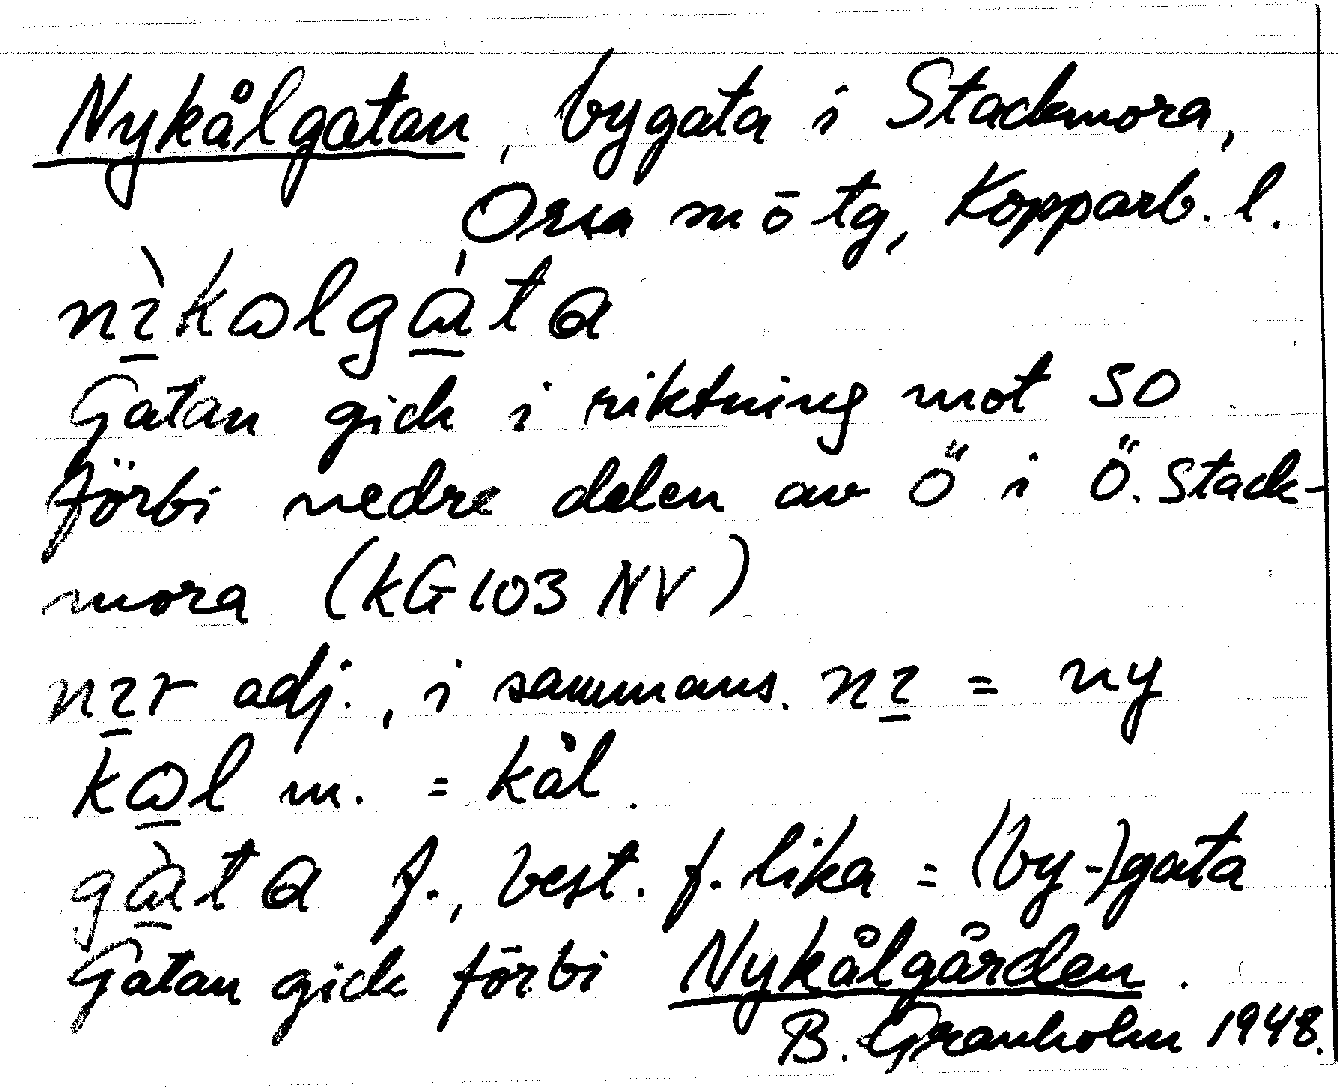 Nykålgatan, bygata i Stackmora,
Orsa m ö tg, Kopparb. l.
nı̲̀kɷlgɑ̲̍tɑ
Gatan gick i riktning mot SO
förbi nedre delen av Ö i Ö. Stack-
mora (kG 103 NV)
nı̲r adj., i sammans. nı̲ = ny
kɷ̲l m. = kål.
gɑ̲̀tɑ f., best. f. lika = (by-)gata
Gatan gick förbi Nykålgården.
B. Granholm 1948.